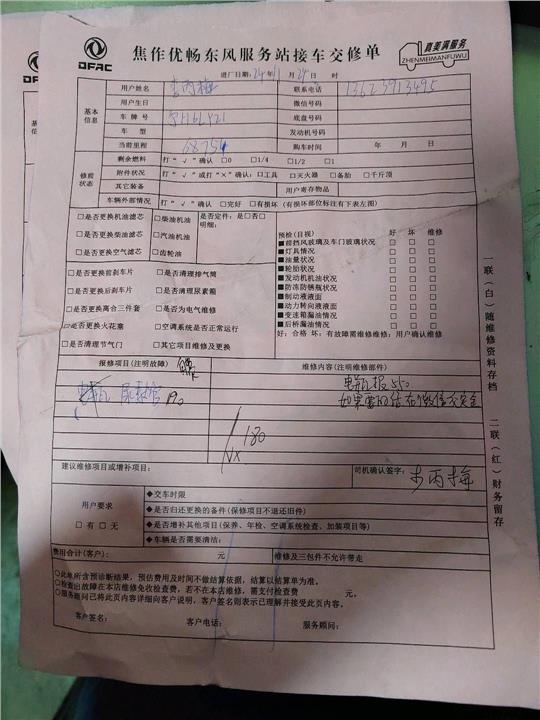 DFAC
焦作优畅东风服务站接车交修单
真美满服务
ZHENMEIMANFUWU
进厂日期:24年 月24日 时
基本信息
用户姓名 李丙梅 联系电话 13623913495
用户生日 微信号码
车牌号 底盘号码
车型 发动机号码
当前里程 68754 购车时间 年 月 日
修前状态
剩余燃料 打“√”确认 □0 □1/4 □1/2 □1
附件状况 打“√”或打“×”确认:□工具 □灭火器 □备胎 □千斤顶
其它装备 用户寄存物品
车辆外部情况 打“√”确认 □完好 □有损坏(有损坏部位标注有下表左图)
□是否更换机油滤芯 □柴油机油 是否定件:是□否□
明细:
□是否更换柴油滤芯 □汽油机油
□是否更换空气滤芯 □齿轮油
□是否更换前刹车片 □是否清理排气筒
□是否更换后刹车片 □是否清理尿素箱
□是否更换离合三件套 □是否为电气维修
□是否更换火花塞 □空调系统是否正常运行
□是否清理节气门 □其它项目维修及更换
预检(目视) 好 坏 维修
■前挡风玻璃及车门玻璃状况 □ □ □
■灯具情况 □ □ □
■油量状况 □ □ □
■轮胎状况 □ □ □
■发动机机油状况 □ □ □
■防冻防锈瓶状况 □ □ □
■制动液液面 □ □ □
■动力转向液液面 □ □ □
■变速箱漏油情况 □ □ □
■后桥漏油情况 □ □ □
好:合格 坏:有故障需维修维修:用户确认维修
报修项目(注明故障) 维修内容(注明维修部件)
尿素管 190 电瓶报550
180
建议维修项目或增补项目: 司机确认签字: 李丙梅
用户要求
□有 □无
◆交车时限
◆是否归还更换的备件(保修项目不退还旧件)
◆是否增补其他项目(保养、年检、空调系统检查、加装项目等)
◆车辆是否需要清洁:
费用合计(客户): 元 维修及三包件不允许带走
○此单所含预诊断结果,预估费用及时间不做结算依据,结算以结算单为准。
○检查出故障在本店维修免收检查费,若不在本店维修,需支付检查费 元。
○服务顾问已将此页内容详细向客户说明,客户签名则表示已理解并接受此页内容。
客户签名: 客户电话: 服务顾问:
一联(白)随维修资料存档 二联(红)财务留存